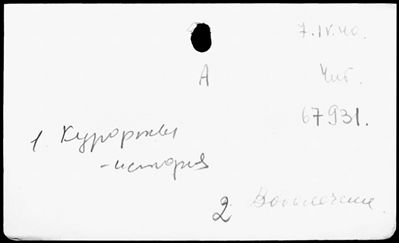 7.IV.40.
А
Чит.
67931.
1. Курорты
- история
2.